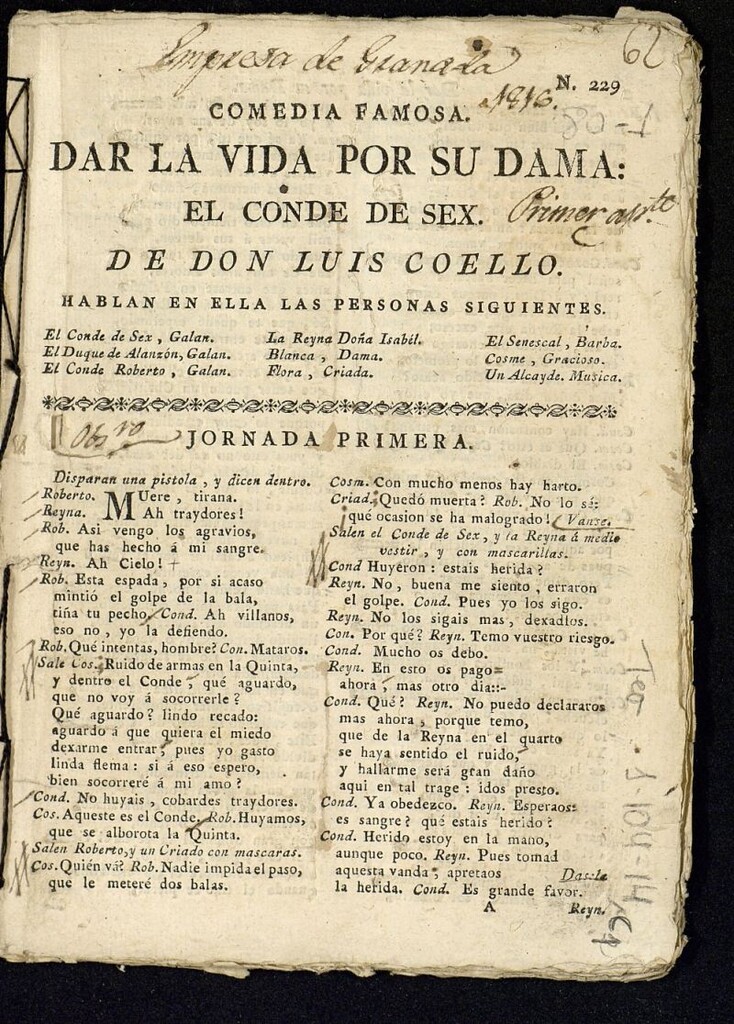 Empresa de Granada
62
N. 229
a 1816.
COMEDIA FAMOSA.
DAR LA VIDA POR SU DAMA:
EL CONDE DE SEX.
Primer apte
DE DON LUIS COELLO.
HABLAN EN ELLA LAS PERSONAS SIGUIENTES.
El Conde de Sex, Galan. La Reyna Doña Isabél. El Senescal, Barba.
El Duque de Alanzón, Galan. Blanca, Dama. Cosme, Gracioso.
El Conde Roberto, Galan. Flora, Criada. Un Alcayde. Musica.
JORNADA PRIMERA.
Disparan una pistola, y dicen dentro.
Roberto. MUere, tirana.
Reyna. Ah traydores!
Rob. Asi vengo los agravios,
que has hecho á mi sangre.
Reyn. Ah Cielo!
Rob. Esta espada, por si acaso
mintió el golpe de la bala,
tiña tu pecho. Cond. Ah villanos,
eso no, yo la defiendo.
Rob. Qué intentas, hombre? Con. Mataros.
Sale Cos. Ruido de armas en la Quinta,
y dentro el Conde, qué aguardo,
que no voy á socorrerle?
Qué aguardo? lindo recado:
aguardo á que quiera el miedo
dexarme entrar; pues yo gasto
linda flema: si á eso espero,
bien socorreré á mi amo?
Cond. No huyais, cobardes traydores.
Cos. Aqueste es el Conde. Rob. Huyamos,
que se alborota la Quinta.
Salen Roberto, y un Criado con mascaras.
Cos. Quién vá? Rob. Nadie impida el paso,
que le meteré dos balas.
Cosm. Con mucho menos hay harto.
Criad. Quedó muerta? Rob. No lo sé:
¡qué ocasion se ha malogrado! Vanse.
Salen el Conde de Sex, y la Reyna á medio
vestir, y con mascarillas.
Cond Huyeron: estais herida?
Reyn. No, buena me siento, erraron
el golpe. Cond. Pues yo los sigo.
Reyn. No los sigais mas, dexadlos.
Con. Por qué? Reyn. Temo vuestro riesgo.
Cond. Mucho os debo.
Reyn. En esto os pago
ahora, mas otro dia::-
Cond. Qué? Reyn. No puedo declararos
mas ahora, porque temo,
que de la Reyna en el quarto
se haya sentido el ruido,
y hallarme será gran daño
aqui en tal trage: idos presto.
Cond. Ya obedezco. Reyn. Esperaos:
es sangre? qué estais herido?
Cond. Herido estoy en la mano,
aunque poco. Reyn. Pues tomad
aquesta vanda, apretaos Dasela
la herida. Cond. Es grande favor.
A Reyn.